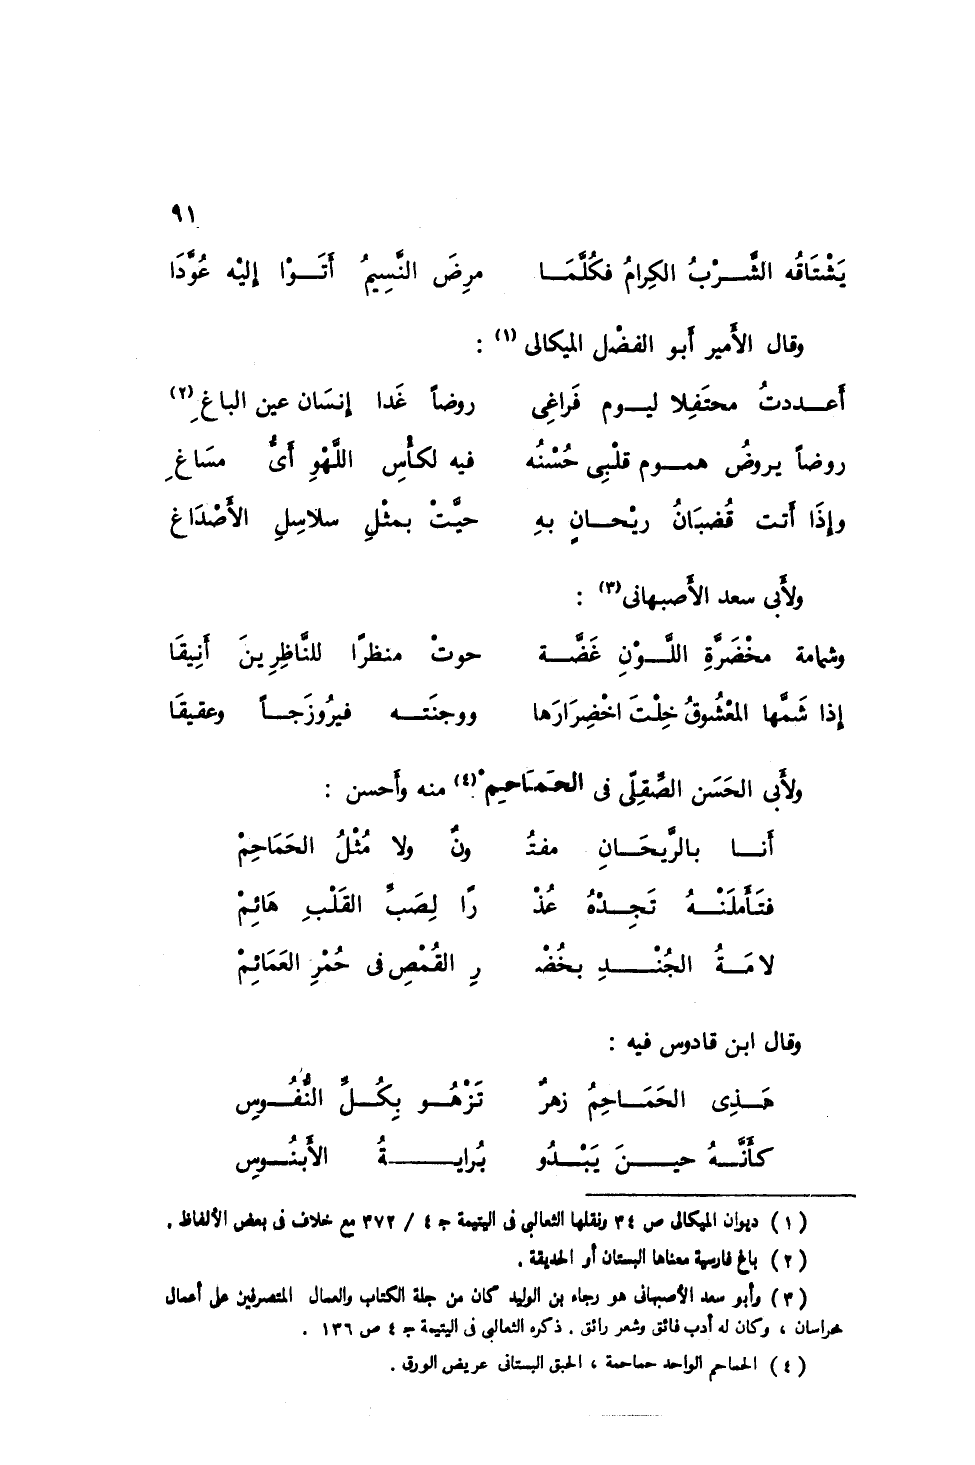 ٩١
يَشْتَاقُه الشَّرْبُ الكِرامُ فكُلَّمَا مرِضَ النَّسِيمُ أَتَوْا إليْه عُوَّدَا
وقال الأَمير أَبو الفضْل الميكالى (١) :
أَعددتُ محتَفِلا ليوم فَراغِى روضاً غَدا إنسَان عين الباغِ (٢)
روضاً يروضُ هموم قلْبِى حُسْنُه فيه لكأْسِ اللَّهْوِ أَىُّ مسَاغِ
وإذَا أَتت قُضبَانُ ريْحانٍ بهِ حيَّتْ بمثْلِ سلاسِلِ الأَصْدَاغِ
ولأَبى سعد الأَصبهانى (٣) :
وشمامة مخْضَرَّةِ اللَّوْنِ غَضَّة حوتْ منظرًا للنَّاظِرِينَ أَنِيقَا
إذا شَمَّها المعْشُوقُ خِلْتَ اخْضِرَارَها ووجنَته فيرُوزَجاً وعقيقَا
ولأَبى الحَسَن الصِّقِلِّى فى الحمَاحِم (٤) منه وأَحسن :
أَنا بالرَّيحَانِ مفتُ ونٌ ولا مُثْلُ الحَمَاحِمْ
فتَأَملَنْهُ تَجِدْهُ عُذْ رًا لِصَبِّ القَلْبِ هَائِمْ
لامَةُ الجُنْدِ بخُضْ رِ القُمْصِ فى حُمْرِ العَمَائِمْ
وقال ابن قادوس فيه :
هَذِى الحَمَاحِمُ زهرٌ تَزْهُو بِكُلِّ النُّفُوسِ
كأَنَّهُ حينَ يَبْدُو بُرايةُ الأَبنُوسِ
(١) ديوان الميكالى ص ٣٤ ونقلها الثعالبي فى اليتيمة جـ ٤ / ٣٧٢ مع خلاف فى بعض الألفاظ .
(٢) باغ فارسية معناها البستان أو الحديقة .
(٣) وأبو سعد الأصبهانى هو رجاء بن الوليد كان من جلة الكتاب والعمال المتصرفين على أعمال
خراسان ، وكان له أدب فائق وشعر رائق . ذكره الثعالبى فى اليتيمة جـ ٤ ص ١٣٦ .
(٤) الحماحم الواحد حماحمة ، الحبق البستانى عريض الورق .